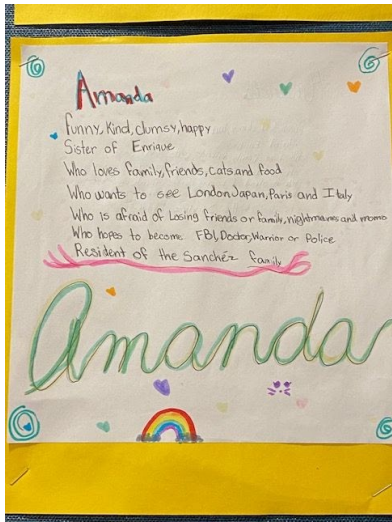 Amanda
funny, kind, clumsy, happy
Sister of Enrique
Who loves family, friends, cats and food
Who wants to see London, Japan, Paris and Italy
Who is afraid of Losing friends or family, nightmares and momo
Who hopes to become FBI, Doctor, Warrior or Police
Resident of the Sanchéz family
Amanda